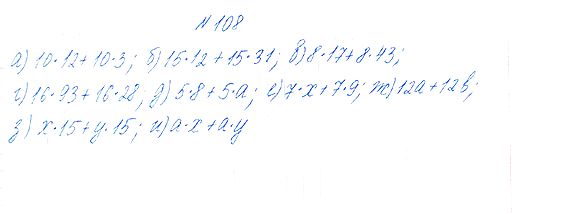 №108
а) 10·12+10·3; б) 15·12+15·31; в) 8·17+8·43;
г) 16·93+16·28; д) 5·8+5·а; е) 7·х+7·9; ж) 12а+12в;
з) х·15+у·15; и) а·х+а·у